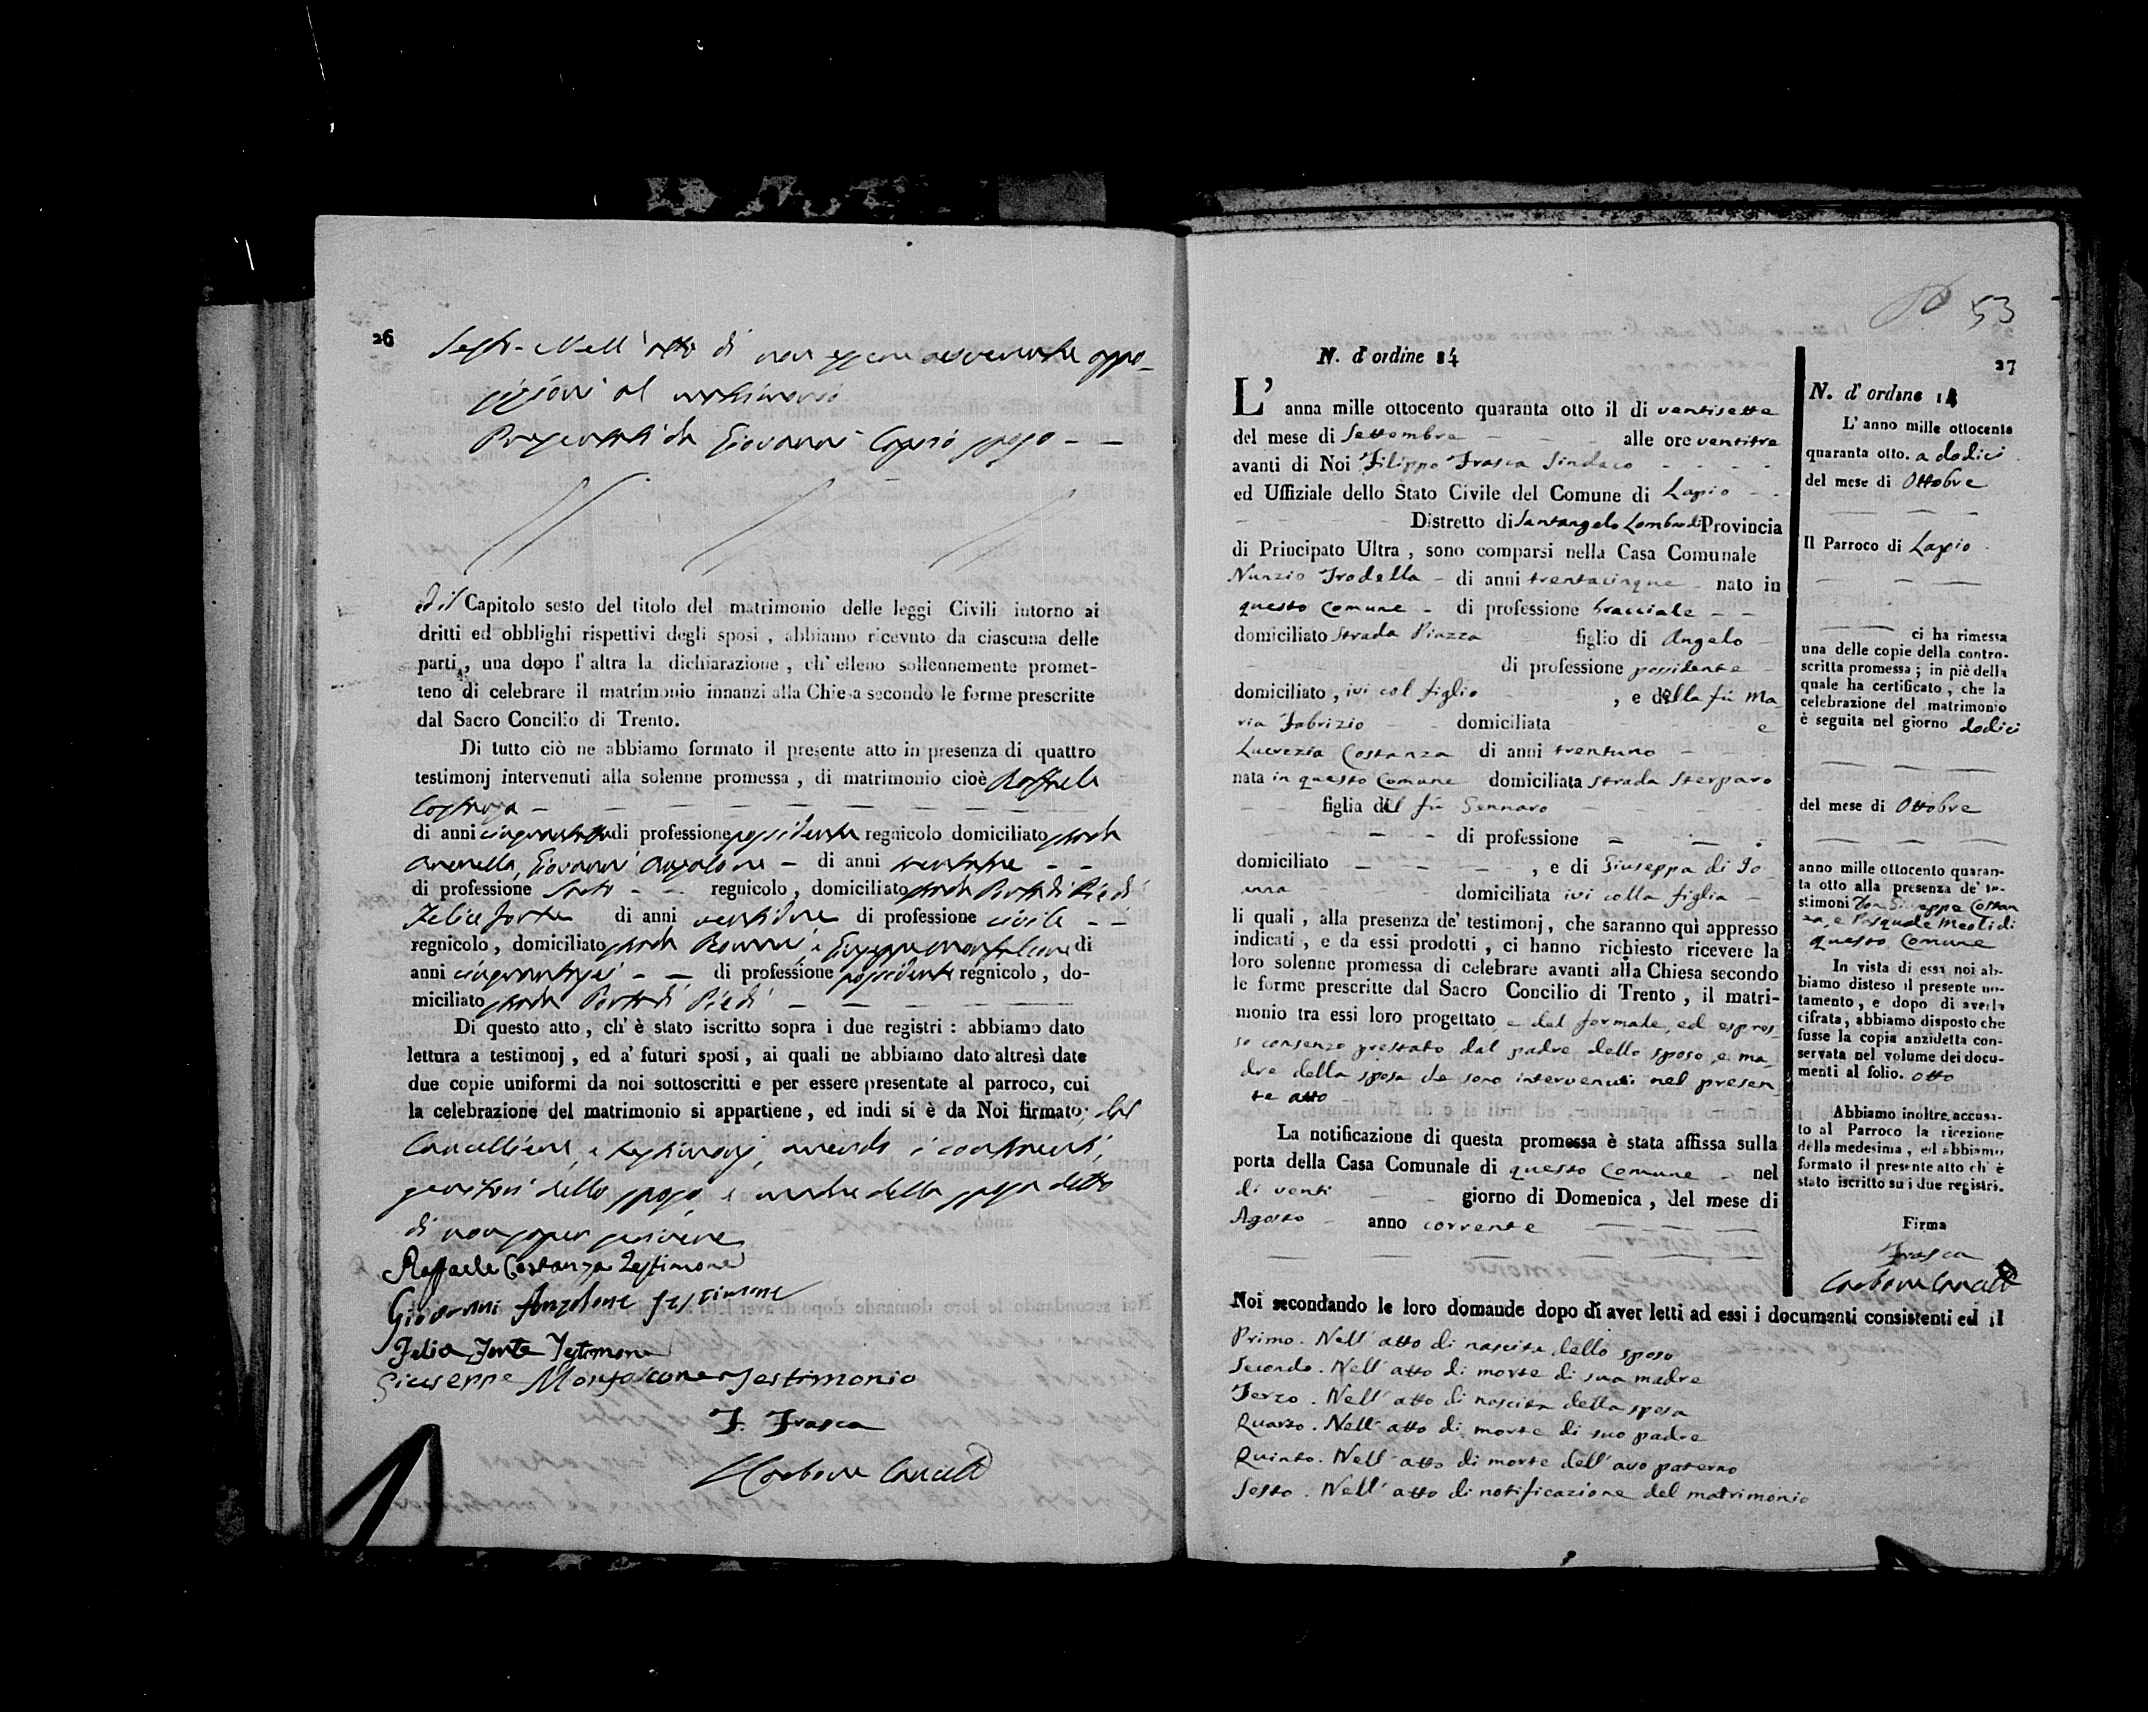 26
Sesto - Nell'atto di non essere avvenute oppo-
sizioni al matrimonio
Presentati da Giovanni sposo - -
ed il Capitolo sesto del titolo del matrimonio delle leggi Civili intorno ai
dritti ed obblighi rispettivi degli sposi, abbiamo ricevuto da ciascuna delle
parti, una dopo l'altra la dichiarazione, ch'elleno sollennemente promet-
teno di celebrare il matrimonio innanzi alla Chiesa secondo le forme prescritte
dal Sacro Concilio di Trento.
Di tutto ciò ne abbiamo formato il presente atto in presenza di quattro
testimonj intervenuti alla solenne promessa, di matrimonio cioè Raffaele
Costanza
di anni di professione possidente regnicolo domiciliato strada
Giovanni Anzalone - di anni - -
di professione Sarto - - regnicolo, domiciliato strada Porta di Piedi
Felice Forte di anni ventidue di professione civile - -
regnicolo, domiciliato strada e Giuseppe Monfalcone di
anni cinquantasei - - di professione possidente regnicolo, do-
miciliato strada Porta di Piedi
Di questo atto, ch'è stato iscritto sopra i due registri: abbiamo dato
lettura a testimonj, ed a' futuri sposi, ai quali ne abbiamo dato altresì date
due copie uniformi da noi sottoscritti e per essere presentate al parroco, cui
la celebrazione del matrimonio si appartiene, ed indi si è da Noi firmato; dal
Cancelliere, e testimonj, avendo i contraenti,
genitori dello sposo, e madre della sposa detto
di non saper scrivere
Raffaele Costanza Testimone
Giovanni Anzalone Testimone
Felice Forte Testimone
Giuseppe Monfalcone Testimonio
F. Frasca
Carbone Cancell
53
27
N. d'ordine 14
L'anna mille ottocento quaranta otto il di ventisette
del mese di Settembre - - - alle ore ventitre
avanti di Noi Filippo Frasca Sindaco - - - -
ed Uffiziale dello Stato Civile del Comune di Lapio - -
Distretto di Santangelo Lombardi Provincia
di Principato Ultra, sono comparsi nella Casa Comunale
Nunzio Trodella - di anni trentacinque - nato in
questo Comune - di professione bracciale - -
domiciliato Strada Piazza figlio di Angelo -
di professione possidente -
domiciliato, ivi col figlio , e della fù Ma
ria Fabrizio - - domiciliata e
Lucrezia Costanza di anni trentuno -
nata in questo Comune domiciliata strada Sterparo
figlia del fù Gennaro
- - di professione - - -
domiciliato - - - , e di Giuseppa di Io
domiciliata ivi colla figlia -
li quali, alla presenza de' testimonj, che saranno quì appresso
indicati, e da essi prodotti, ci hanno richiesto ricevere la
loro solenne promessa di celebrare avanti alla Chiesa secondo
le forme prescritte dal Sacro Concilio di Trento, il matri-
monio tra essi loro progettato e del formale, ed espres
so consenzo prestato dal padre dello sposo, e ma
dre della sposa che sono intervenuti nel presen
te atto
La notificazione di questa promessa è stata affissa sulla
porta della Casa Comunale di questo Comune - nel
di venti - - giorno di Domenica, del mese di
Agosto - anno corrente
N. d'ordine 14
L'anno mille ottocento
quaranta otto. a dodici
del mese di Ottobre
Il Parroco di Lapio
ci ha rimessa
una delle copie della contro-
scritta promessa; in piè della
quale ha certificato, che la
celebrazione del matrimonio
è seguita nel giorno dodici
del mese di Ottobre
anno mille ottocento quaran-
ta otto alla presenza de' te-
stimoni Don Giuseppe Costan
za, e Pasquale Meoli di
questo Comune
In vista di essa noi ab-
biamo disteso il presente no-
tamento, e dopo di averla
cifrata, abbiamo disposto che
fusse la copia anzidetta con-
servata nel volume dei docu-
menti al folio. otto
Abbiamo inoltre accusa-
to al Parroco la ricezione
della medesima, ed abbiamo
formato il presente atto ch'è
stato iscritto su i due registri.
Firma
Frasca
Carbone Cancell
Noi secondando le loro domande dopo di aver letti ad essi i documenti consistenti ed il
Primo. Nell'atto di nascita dello sposo
Secondo. Nell'atto di morte di sua madre
Terzo. Nell'atto di nascita della sposa
Quarto. Nell'atto di morte di suo padre
Quinto. Nell'atto di morte dell'avo paterno
Sesto. Nell'atto di notificazione del matrimonio